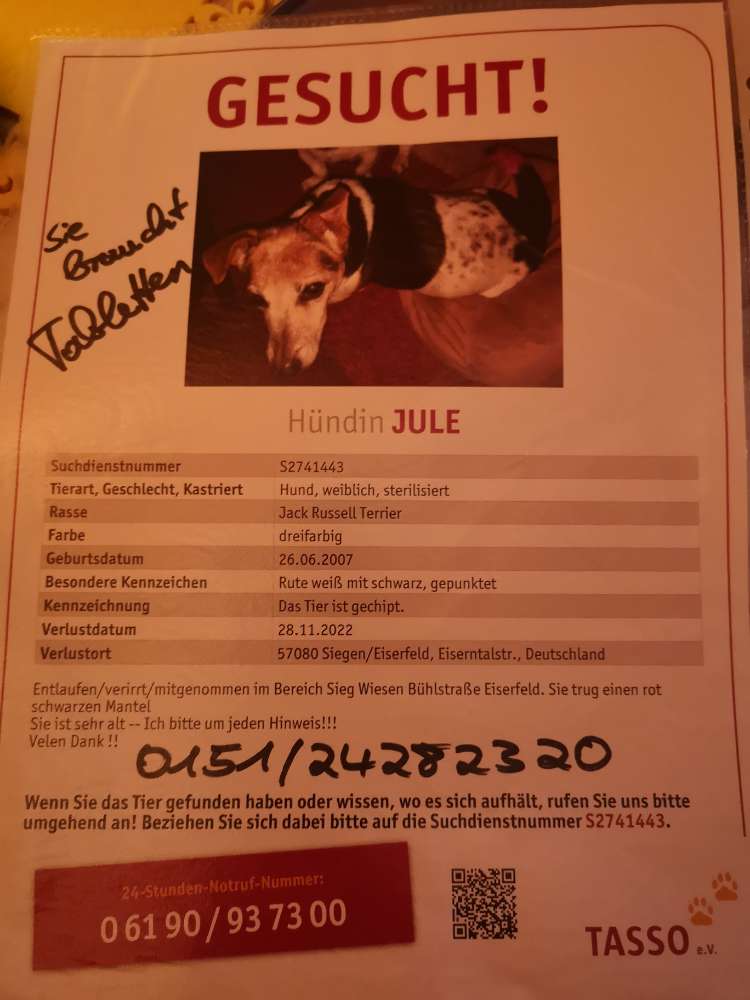 GESUCHT!
Sie
Braucht
Tabletten
Hündin JULE
Suchdienstnummer S2741443
Tierart, Geschlecht, Kastriert Hund, weiblich, sterilisiert
Rasse Jack Russell Terrier
Farbe dreifarbig
Geburtsdatum 26.06.2007
Besondere Kennzeichen Rute weiß mit schwarz, gepunktet
Kennzeichnung Das Tier ist gechipt.
Verlustdatum 28.11.2022
Verlustort 57080 Siegen/Eiserfeld, Eiserntalstr., Deutschland
Entlaufen/verirrt/mitgenommen im Bereich Sieg Wiesen Bühlstraße Eiserfeld. Sie trug einen rot
schwarzen Mantel
Sie ist sehr alt -- Ich bitte um jeden Hinweis!!!
Velen Dank !!
0151/24282320
Wenn Sie das Tier gefunden haben oder wissen, wo es sich aufhält, rufen Sie uns bitte
umgehend an! Beziehen Sie sich dabei bitte auf die Suchdienstnummer S2741443.
24-Stunden-Notruf-Nummer:
0 61 90 / 93 73 00
TASSO e.V.